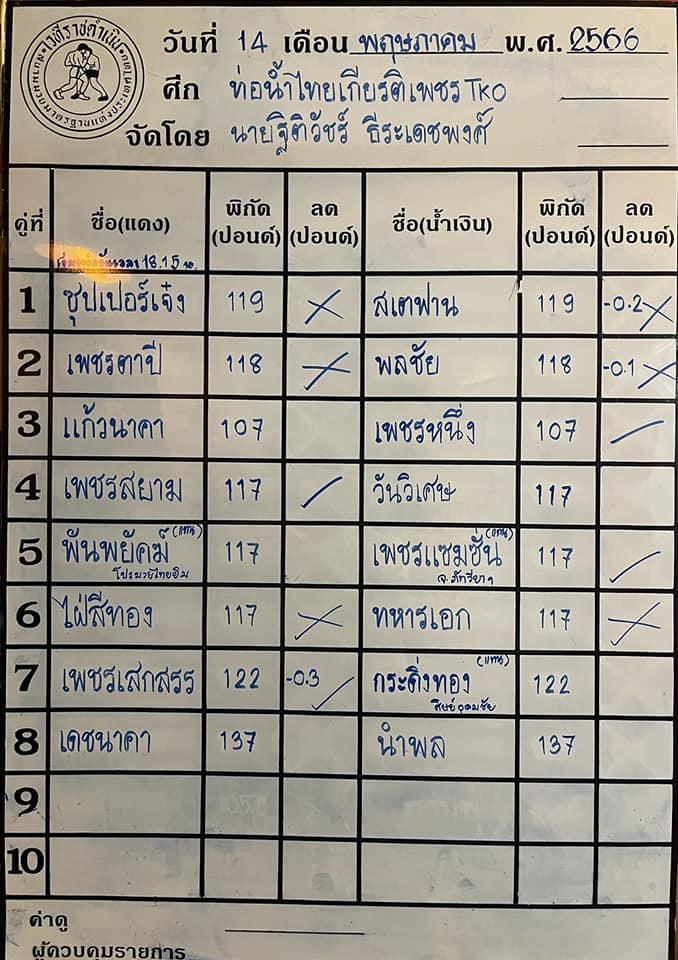 เวทีราชดำเนิน
สนามมวยมาตรฐานแห่งประเทศไทย
วันที่ 14 เดือน พฤษภาคม พ.ศ. 2566
ศึก ท่อน้ำไทยเกียรติเพชร TKO
จัดโดย นายฐิติวัชร์ ธีระเดชพงศ์
คู่ที่ ชื่อ(แดง) พิกัด (ปอนด์) ลด (ปอนด์) ชื่อ(น้ำเงิน) พิกัด (ปอนด์) ลด (ปอนด์)
18.15 น.
1 ซุปเปอร์เจ๋ง 119 สเตฟาน 119 -0.2
2 เพชรตาปี 118 พลชัย 118 -0.1
3 แก้วนาคา 107 เพชรหนึ่ง 107
4 เพชรสยาม 117 วันวิเศษ 117
5 พันพยัคฆ์ (แทน) 117 เพชรแซมซั่น (แทน) 117
6 ไผ่สีทอง 117 ทหารเอก 117
7 เพชรเสกสรร 122 -0.3 กระดิ่งทอง (แทน) 122
8 เดชนาคา 137 นำพล 137
9
10
ค่าดู
ผู้ควบคุมรายการ